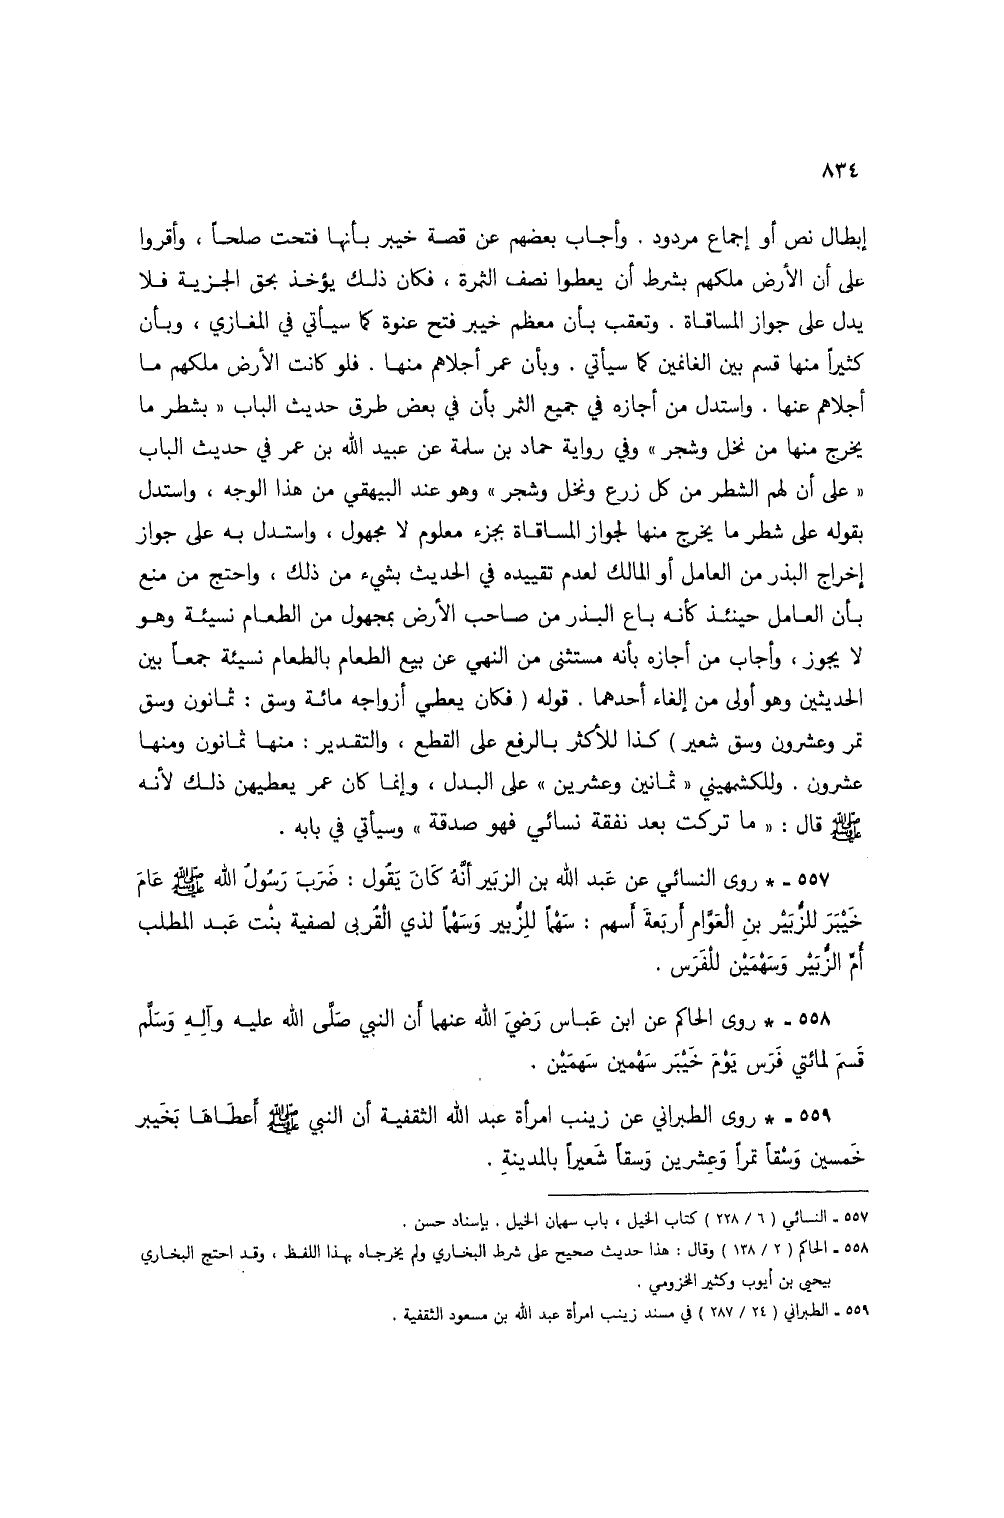 ٨٣٤
إبطال نص أو إجماع مردود . وأجاب بعضهم عن قصة خيبر بأنها فتحت صلحاً ، وأقروا
على أن الأرض ملكهم بشرط أن يعطوا نصف الثمرة ، فكان ذلك يؤخذ بحق الجزية فلا
يدل على جواز المساقاة . وتعقب بأن معظم خيبر فتح عنوة كما سيأتي في المغازي ، وبأن
كثيراً منها قسم بين الغانمين كما سيأتي . وبأن عمر أجلاهم منها . فلو كانت الأرض ملكهم ما
أجلاهم عنها . واستدل من أجازه في جميع الثمر بأن في بعض طرق حديث الباب « بشطر ما
يخرج منها من نخل وشجر » وفي رواية حماد بن سلمة عن عبيد الله بن عمر في حديث الباب
« على أن لهم الشطر من كل زرع ونخل وشجر » وهو عند البيهقي من هذا الوجه ، واستدل
بقوله على شطر ما يخرج منها لجواز المساقاة بجزء معلوم لا مجهول ، واستدل به على جواز
إخراج البذر من العامل أو المالك لعدم تقييده في الحديث بشيء من ذلك ، واحتج من منع
بأن العامل حينئذ كأنه باع البذر من صاحب الأرض بمجهول من الطعام نسيئة وهو
لا يجوز ، وأجاب من أجازه بأنه مستثنى من النهي عن بيع الطعام بالطعام نسيئة جمعاً بين
الحديثين وهو أولى من إلغاء أحدهما . قوله ( فكان يعطي أزواجه مائة وسق : ثمانون وسق
تمر وعشرون وسق شعير ) كذا للأكثر بالرفع على القطع ، والتقدير : منها ثمانون ومنها
عشرون . وللكشمهيني « ثمانين وعشرين » على البدل ، وإنما كان عمر يعطيهن ذلك لأنه
ﷺ قال : « ما تركت بعد نفقة نسائي فهو صدقة » وسيأتي في بابه .
٥٥٧ - * روى النسائي عن عَبد الله بن الزبَير أنَّهُ كَانَ يَقُول : ضَرَبَ رَسُولُ الله ﷺ عَامَ
خَيْبَرَ للزُّبَيْر بنِ الْعَوَّامِ أَربَعةَ أَسهم : سَهْماً للزُّبير وَسَهْماً لذي الْقُربى لصفية بنْت عَبد المطلب
أُمِّ الزُّبَيْر وَسَهْمَيْن للْفَرَس .
٥٥٨ - * روى الحاكم عن ابن عَباس رَضيَ الله عنهما أَن النبي صَلَّى الله عليه وآلِهِ وَسَلَّم
قَسمَ لمائتي فَرَس يَوْمَ خَيْبَر سَهْمين سَهمَيْن .
٥٥٩ - * روى الطبراني عن زينب امرأة عبد الله الثقفية أن النبي ﷺ أَعطَاهَا بَخَيبر
خَمسين وَسْقاً تمراً وَعِشرين وَسقاً شَعيراً بالمدينةِ .
٥٥٧ - النسائي ( ٦ / ٢٢٨ ) كتاب الخيل ، باب سهمان الخيل . بإسناد حسن .
٥٥٨ - الحاكم ( ٢ / ١٣٨ ) وقال : هذا حديث صحيح على شرط البخاري ولم يخرجاه بهذا اللفظ ، وقد احتج البخاري
بيحيى بن أيوب وكثير المخزومي .
٥٥٩ - الطبراني ( ٢٤ / ٢٨٧ ) في مسند زينب امرأة عبد الله بن مسعود الثقفية .